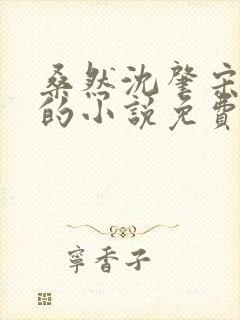 桑然沈肇宗
的小说免费
寧香子